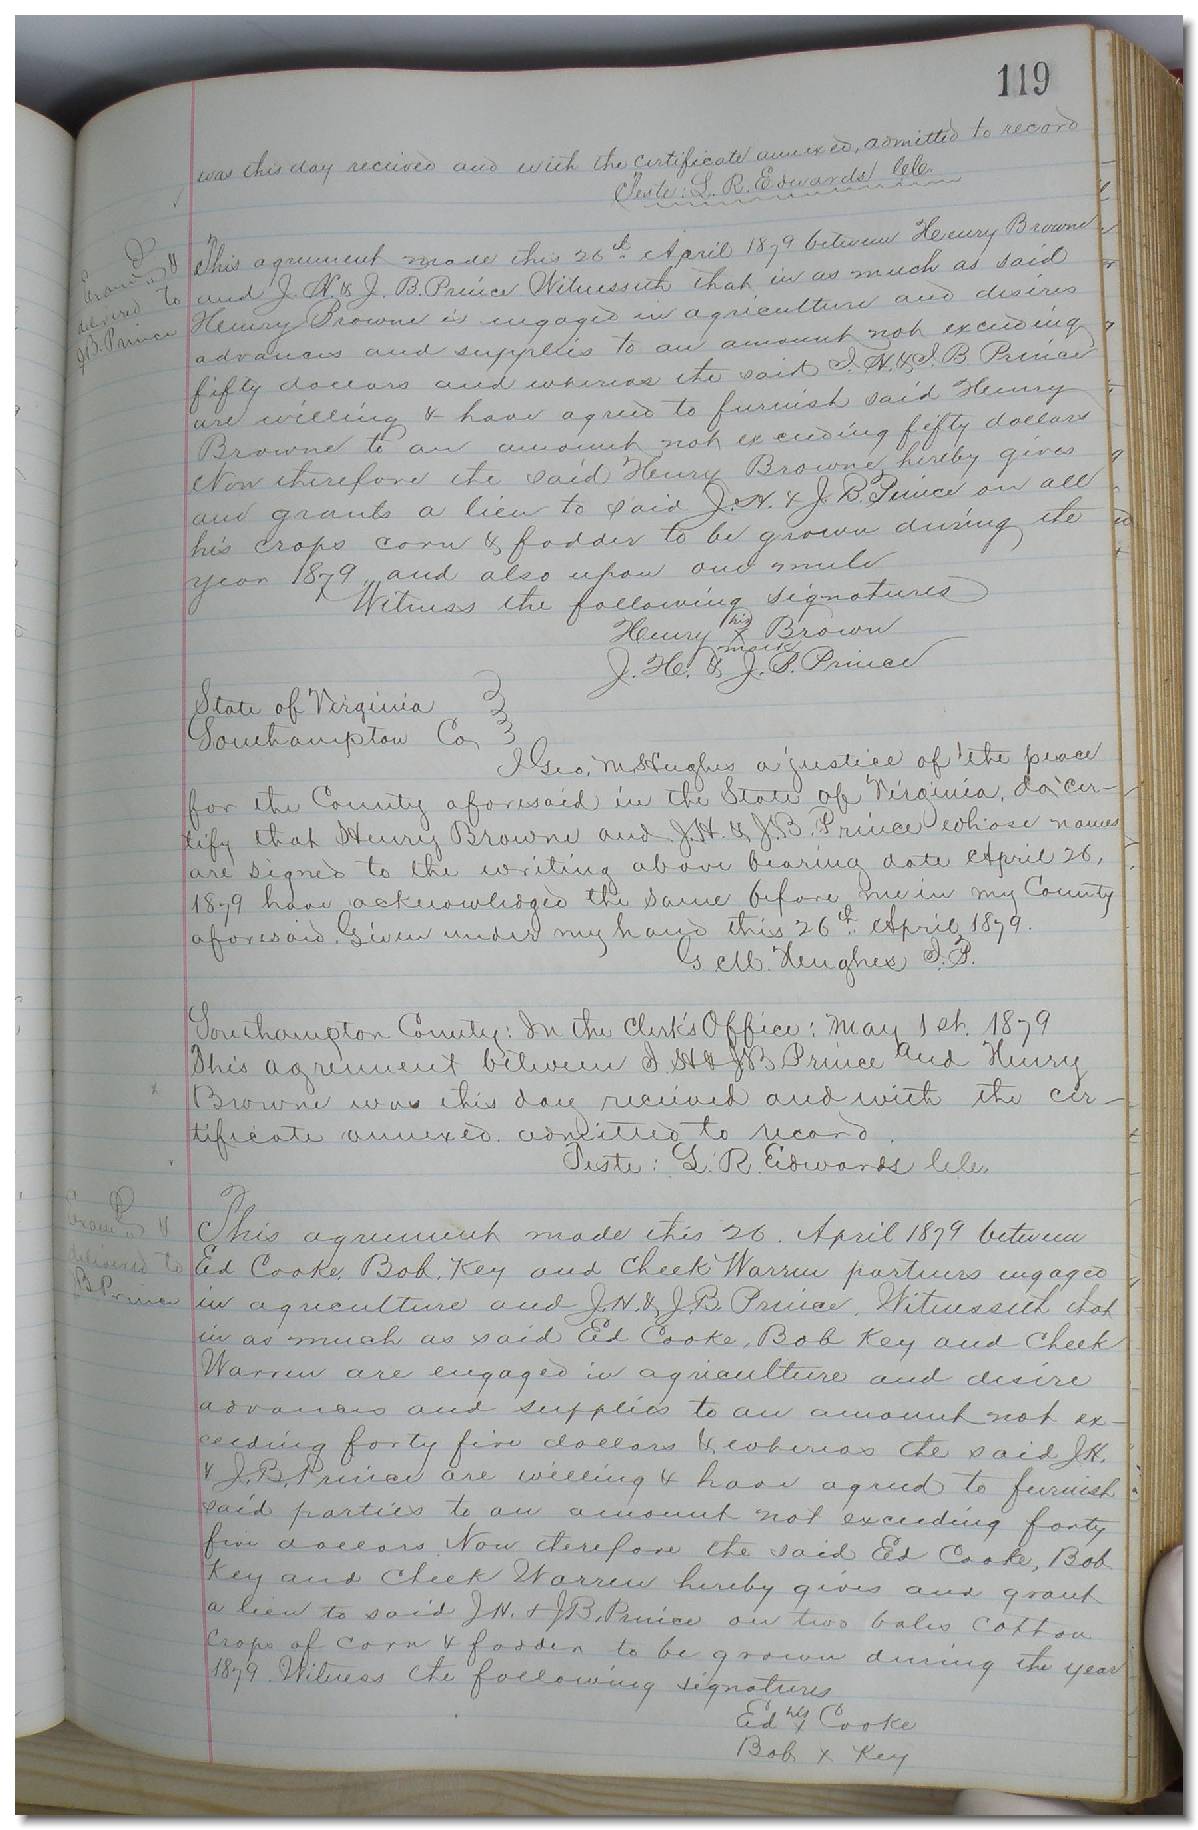 119
was this day received and with the certificate annexed, admitted to record
Teste: L. R. Edwards Clk.
Exam'd &
delivered to
J B. Prince
This agreement made this 26th April 1879 between Henry Browne
and J. H. & J. B. Prince Witnesseth that in as much as said
Henry Browne is engaged in agriculture and desires
advances and supplies to an amount not exceeding
fifty dollars and whereas the said J. H. & J. B Prince
are willing & have agreed to furnish said Henry
Browne to an amount not exceeding fifty dollars
Now therefore the said Henry Browne hereby gives
and grants a lien to said J. H. & J. B. Prince on all
his crops corn & fodder to be grown during the
year 1879, and also upon one mule
Witness the following signatures
Henry his X mark Brown
J. H. & J. B. Prince
State of Virginia
Southampton Co,
I Geo, M. Hughes a justice of the peace
for the County aforesaid in the State of Virginia, do cer-
tify that Henry Browne and J. H. & J. B. Prince whose names
are signed to the writing above bearing date April 26,
1879 have acknowledged the same before me in my County
aforesaid. Given under my hand this 26th April, 1879.
G. M. Hughes J. P.
Southampton County: In the Clerk's Office: May 1st. 1879
This agreement between J. H & J B Prince and Henry
Browne was this day received and with the cer-
tificate annexed. admitted to record.
Teste: L. R. Edwards Clk.
Exam'd &
delivered to
J B Prince
This agreement made this 26. April 1879 between
Ed Cooke, Bob. Key and Cheek Warren partners engaged
in agriculture and J. H. & J. B. Prince. Witnesseth that
in as much as said Ed Cooke, Bob Key and Cheek
Warren are engaged in agriculture and desire
advances and supplies to an amount not ex-
ceeding forty five dollars & whereas the said J. H.
& J. B. Prince are willing & have agreed to furnish
said parties to an amount not exceeding forty
five dollars. Now therefore the said Ed Cooke, Bob
Key and Cheek Warren hereby gives and grant
a lien to said J H. & J B. Prince on two bales cotton
crops of corn & fodder to be grown during the year
1879. Witness the following signatures
Ed his X Cooke
Bob X Key